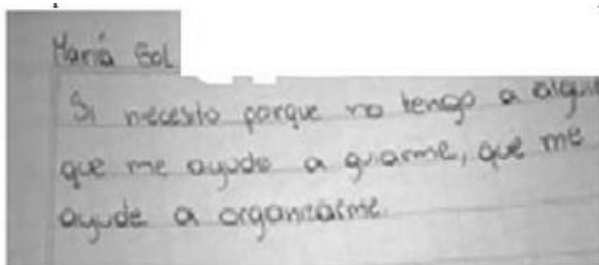 María Sol
Si necesito porque no tengo a alguie
que me ayude a guiarme, que me
ayude a organizarme.